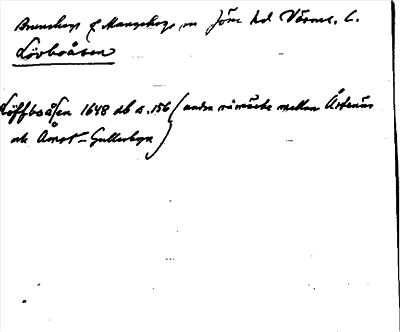 Brunskogs & Mangskogs sn Jösse hd Värml. l.
Lövboåsen
Löffboåsen 1648 db s. 156 (andra råmärke mellan Årtenäs
och Åmot - Gullerbyn)